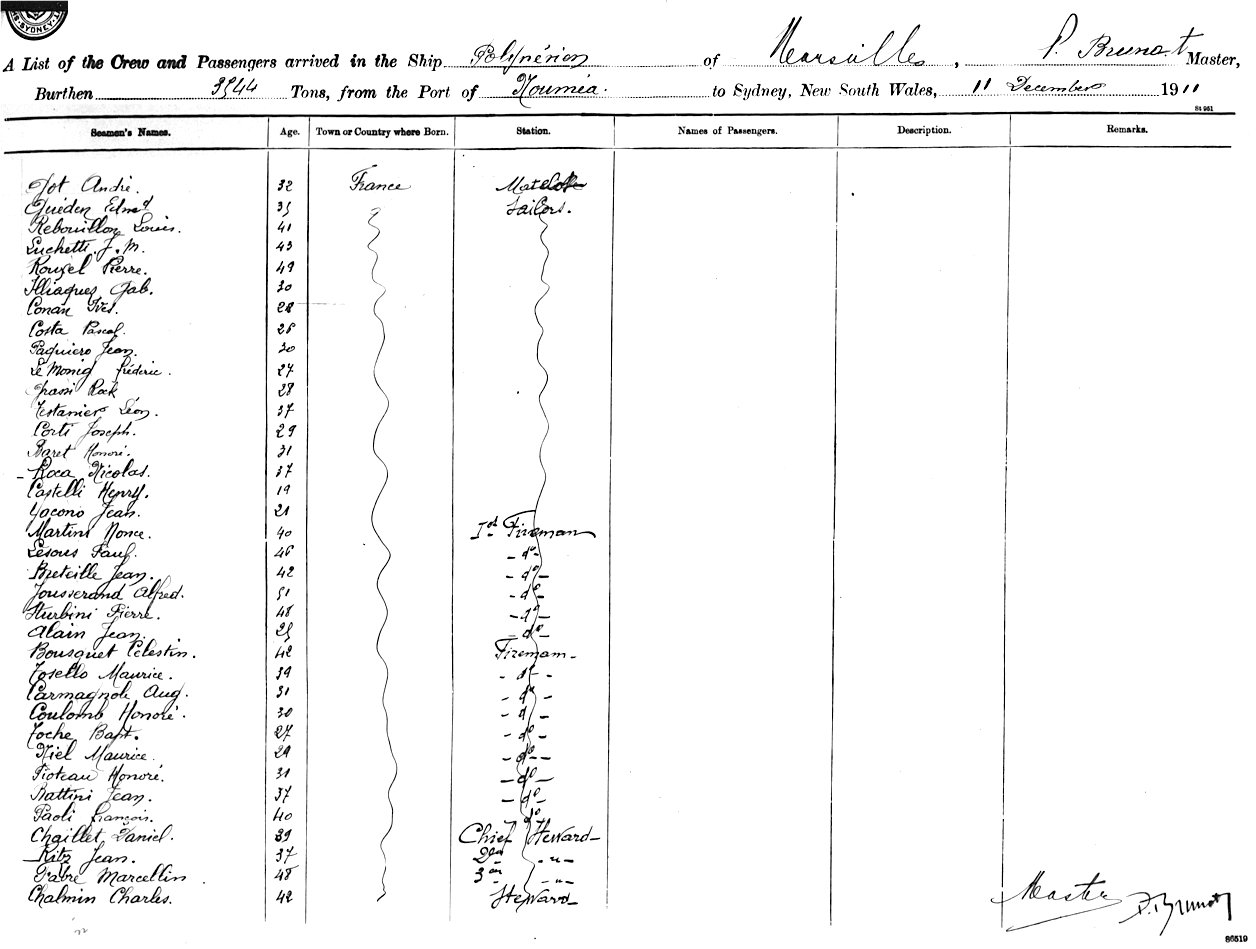 SYDNEY
A List of the Crew and Passengers arrived in the Ship Polynérien of Marseille, P. Brunat Master,
Burthen 3544 Tons, from the Port of Nouméa. to Sydney, New South Wales, 11 December 1911
St 951
Seamen's Names. Age. Town or Country where Born. Station. Names of Passengers. Description. Remarks.
Jot André. 32 France Matelote
Quéden Edmd 35 Sailors.
Rebouillon Louis. 41
Luchetti J. M. 43
Rouzel Pierre. 49
Illiaques Gab. 30
Conan Yves. 28
Costa Pascal. 26
Paquiero Jean. 30
Le Monig Fréderic. 27
Grassi Rock 28
Testanier Léon. 37
Corti Joseph. 29
Baret Honoré. 31
Roca Nicolas. 37
Castelli Henry. 19
Yacono Jean. 21
Martini Nonce. 40 Fireman
Lesous Paul. 46 - do -
Breteille Jean. 42 - do -
Jousserand Alfred. 51 - do -
Sturbini Pierre. 48 - do -
Alain Jean. 25 - do -
Bousquet Célestin. 42 Fireman -
Tosello Maurice. 39 - do -
Carmagnole Aug. 31 - do -
Coulomb Honoré. 30 - d -
Toche Bapt. 27 - do -
Niel Maurice. 29 - do -
Pioteau Honoré. 31 - do -
Battini Jean. 37 - do -
Paoli François. 40 do
Chaillet Daniel. 39 Chief Steward -
Ritz Jean. 37 2d - " -
Fabre Marcellin 48 3d - " -
Chalmin Charles. 42 Steward -
Master P. Brunat
86519